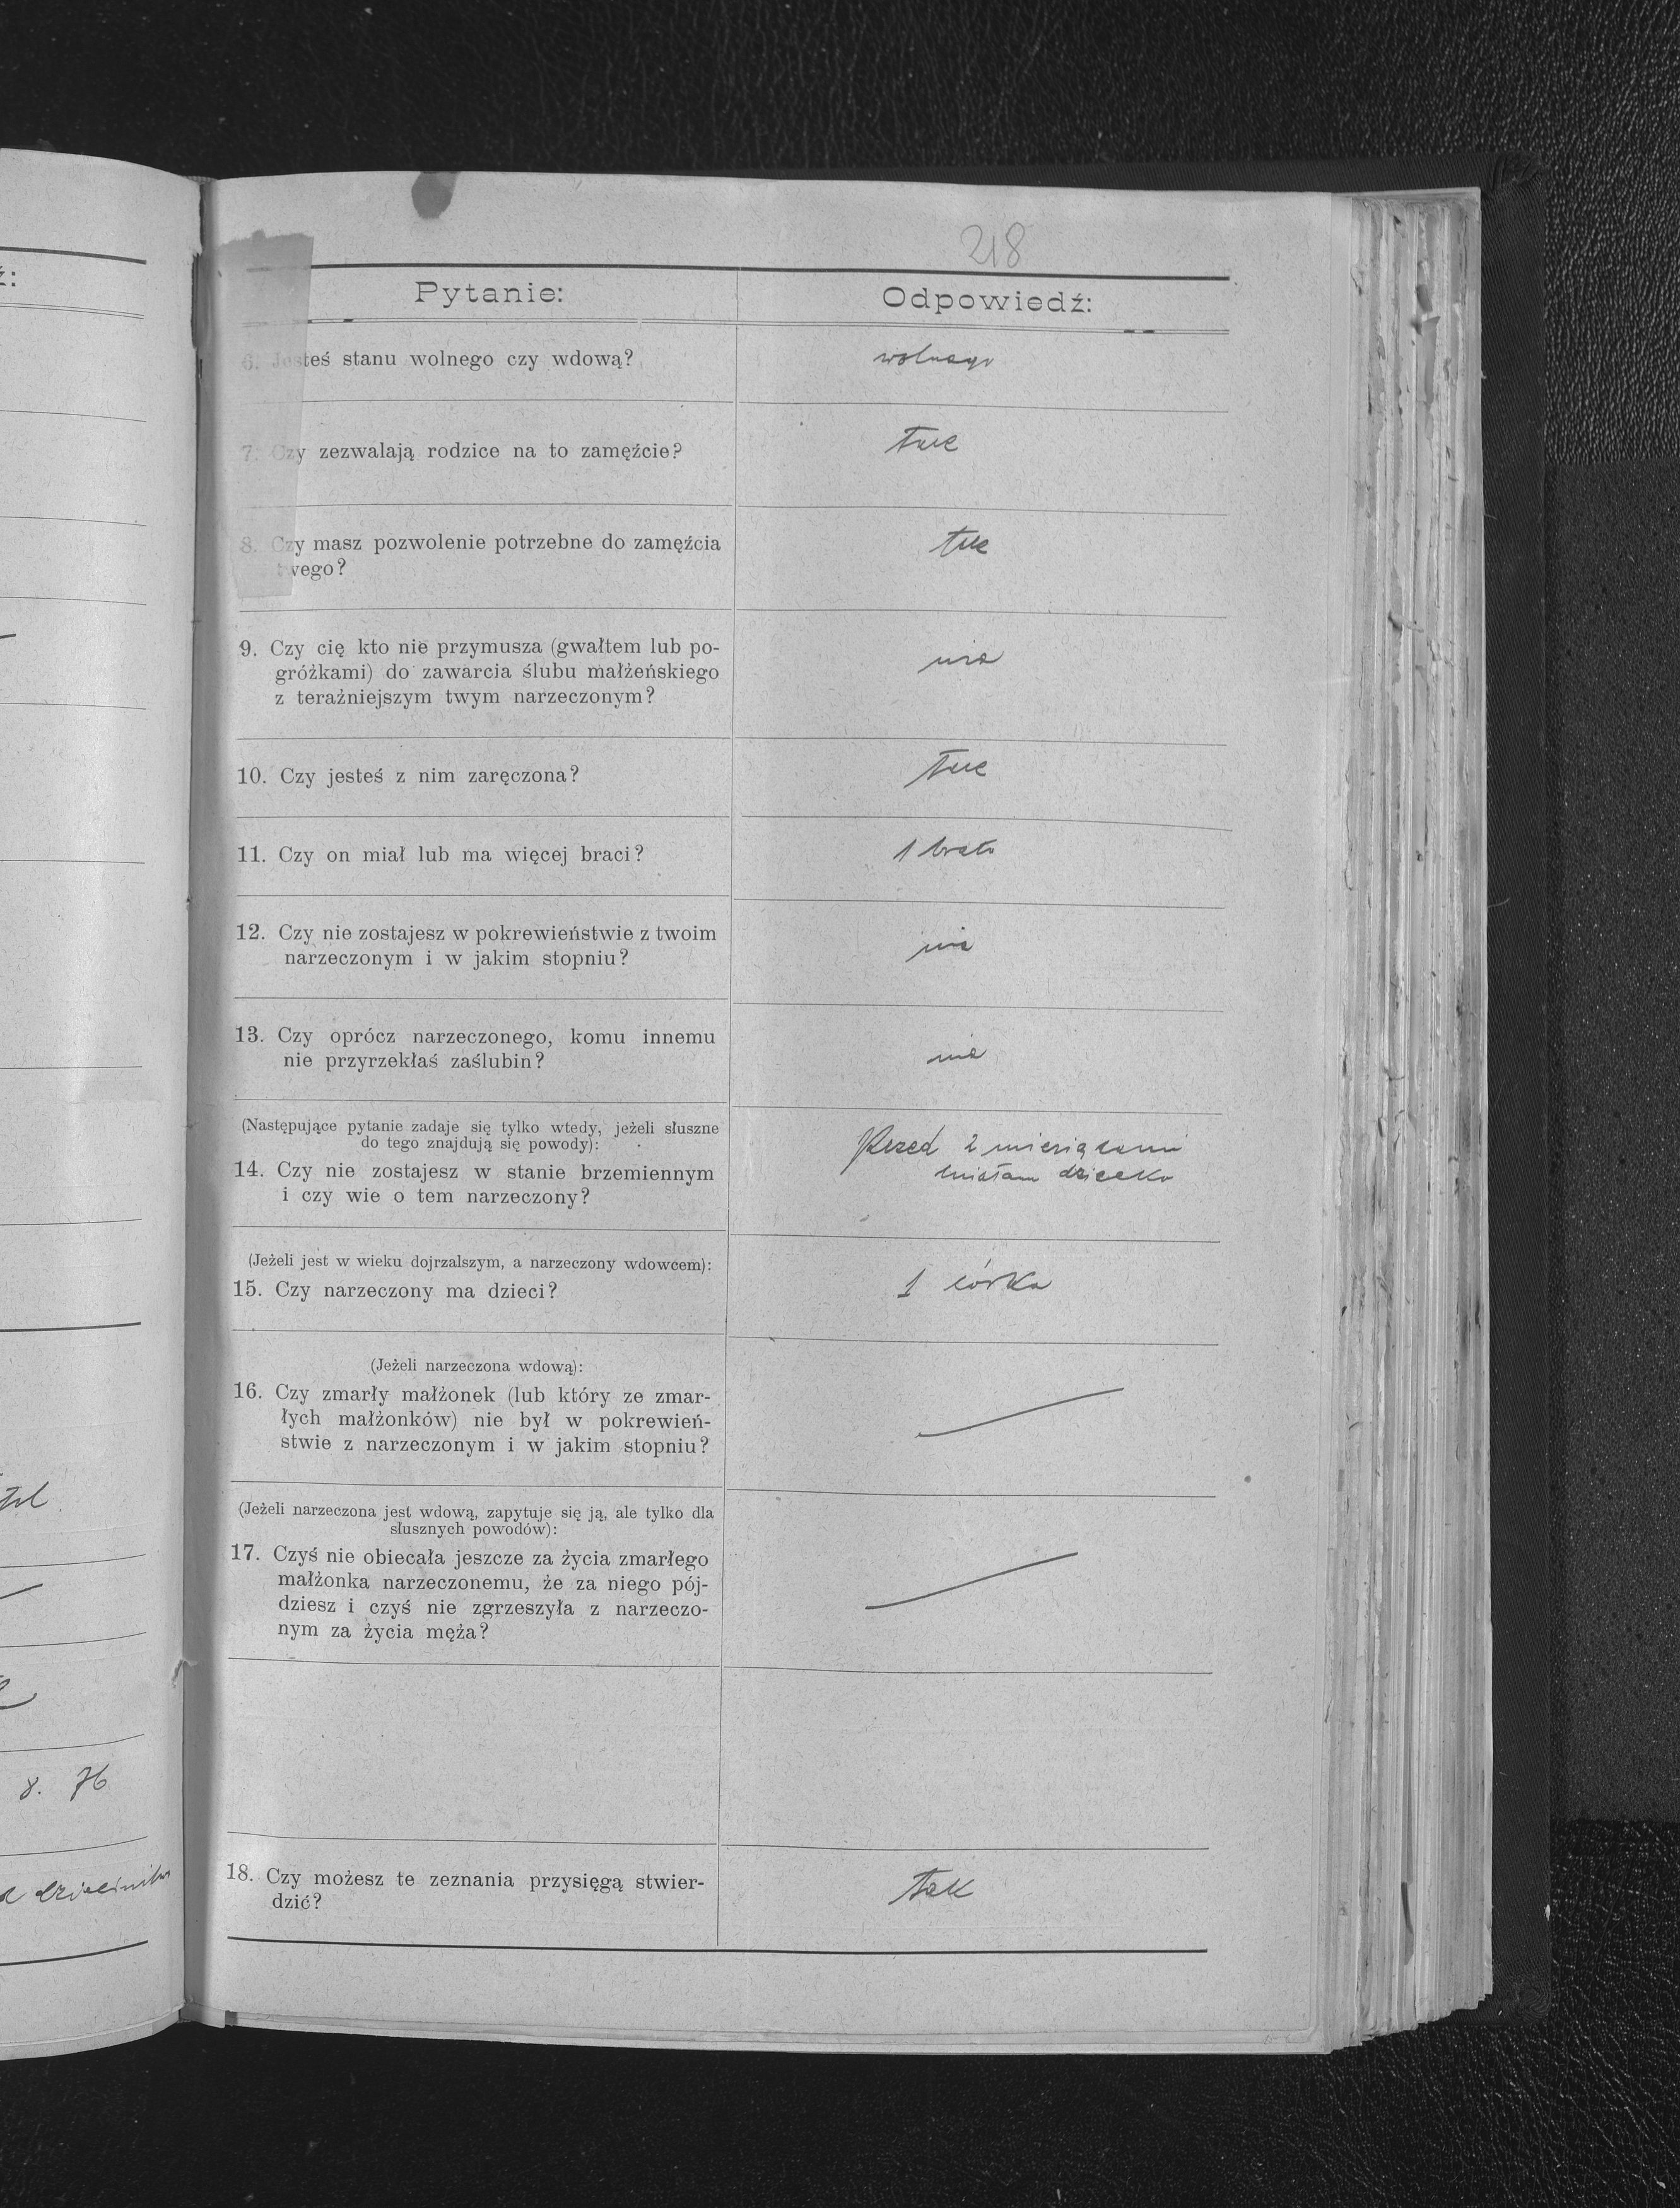 ź:
tel.
8. 76
218
Pytanie:
Odpowiedź:
6. Jesteś stanu wolnego czy wdową?
wolnego
7. Czy zezwalają rodzice na to zamęźcie?
tak
8. Czy masz pozwolenie potrzebne do zamęźcia
twego?
tak
9. Czy cię kto nie przymusza (gwałtem lub po-
gróżkami) do zawarcia ślubu małżeńskiego
z teraźniejszym twym narzeczonym?
nie
10. Czy jesteś z nim zaręczona?
tak
11. Czy on miał lub ma więcej braci?
1 brata
12. Czy nie zostajesz w pokrewieństwie z twoim
narzeczonym i w jakim stopniu?
nie
13. Czy oprócz narzeczonego, komu innemu
nie przyrzekłaś zaślubin?
nie
(Następujące pytanie zadaje się tylko wtedy, jeżeli słuszne
do tego znajdują się powody):
14. Czy nie zostajesz w stanie brzemiennym
i czy wie o tem narzeczony?
Przed 2 miesiącami
miałam dziecko
(Jeżeli jest w wieku dojrzalszym, a narzeczony wdowcem):
15. Czy narzeczony ma dzieci?
1 córka
(Jeżeli narzeczona wdową):
16. Czy zmarły małżonek (lub który ze zmar-
łych małżonków) nie był w pokrewień-
stwie z narzeczonym i w jakim stopniu?
(Jeżeli narzeczona jest wdową, zapytuje się ją, ale tylko dla
słusznych powodów):
17. Czyś nie obiecała jeszcze za życia zmarłego
małżonka narzeczonemu, że za niego pój-
dziesz i czyś nie zgrzeszyła z narzeczo-
nym za życia męża?
18. Czy możesz te zeznania przysięgą stwier-
dzić?
tak